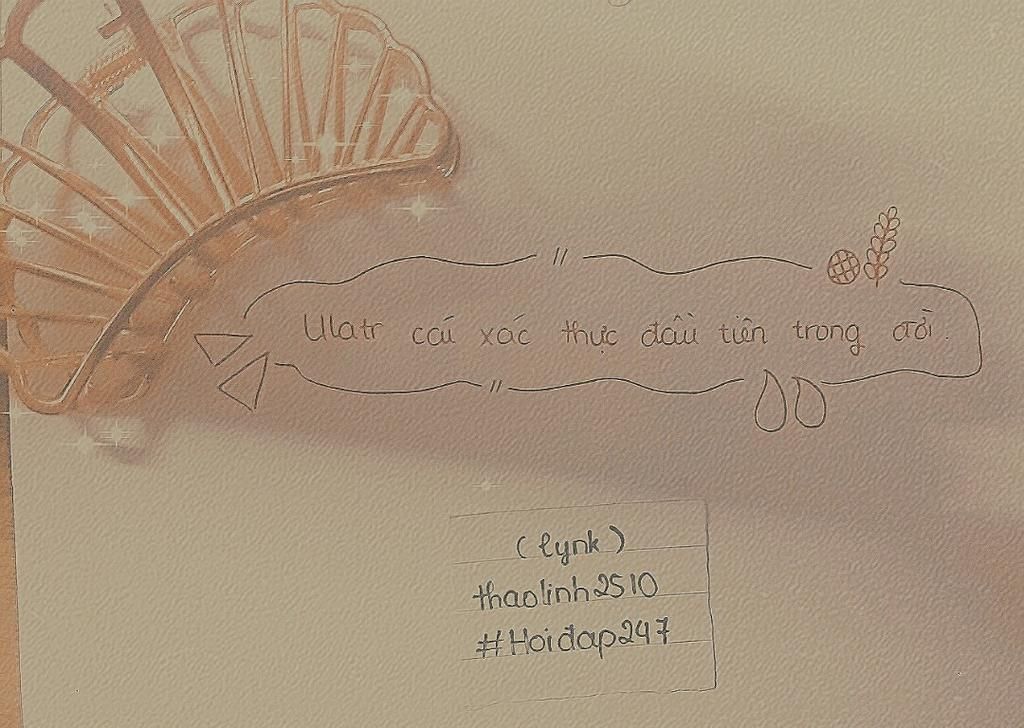 Ulatr cái xác thực đầu tiên trong đời.
(lynk)
thaolinh2510
#Hoiđap247